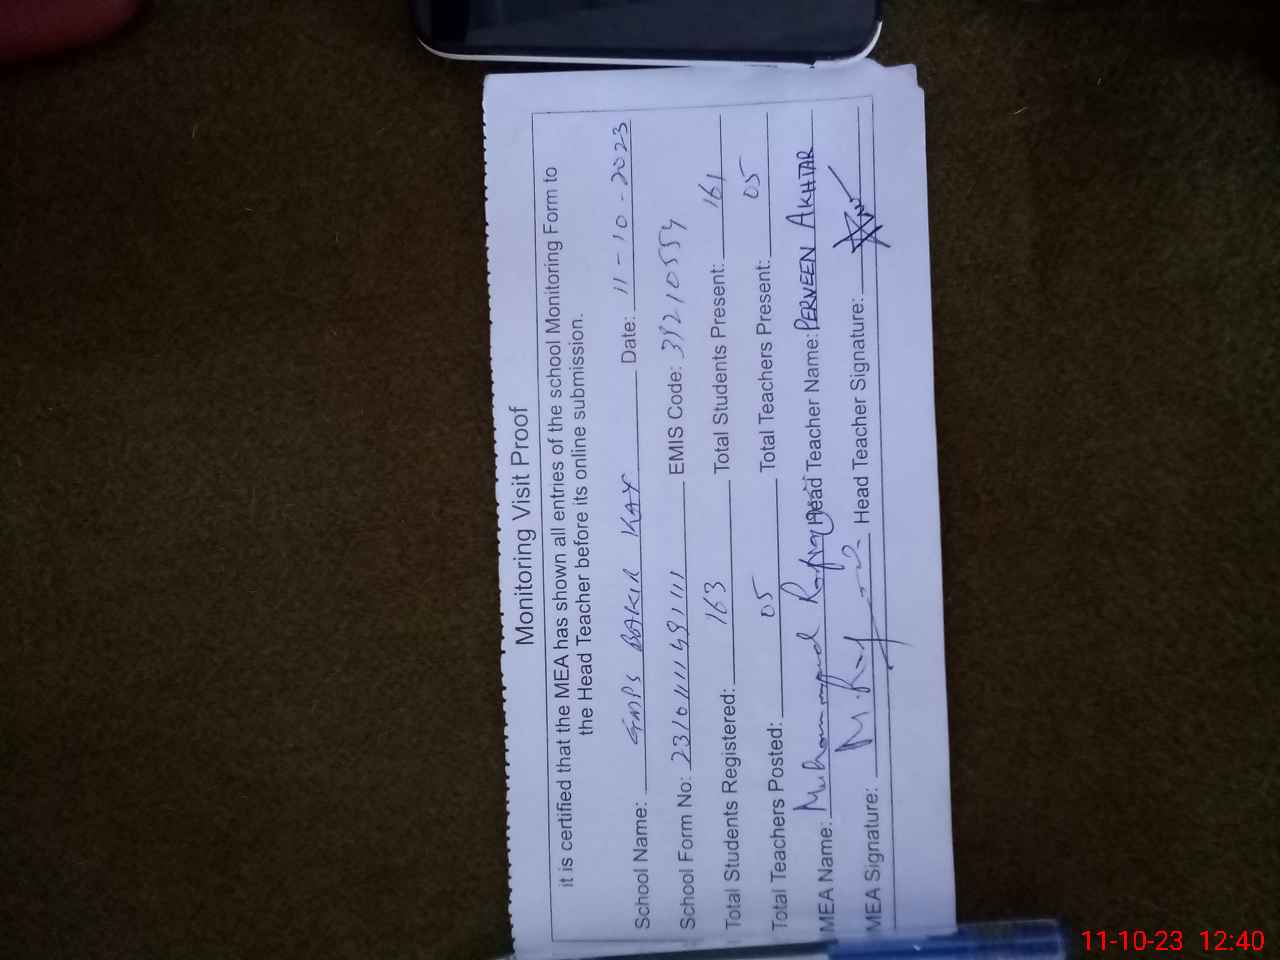 Monitoring Visit Proof
it is certified that the MEA has shown all entries of the school Monitoring Form to
the Head Teacher before its online submission.
School Name: GMPS BAKIR KAY Date: 11-10-2023
School Form No: 231011149111 EMIS Code: 39210554
Total Students Registered: 163 Total Students Present: 161
Total Teachers Posted: 05 Total Teachers Present: 05
MEA Name: Muhammad Rafiq Head Teacher Name: PERVEEN AKHTAR
MEA Signature: M. Raf Head Teacher Signature:
11-10-23 12:40